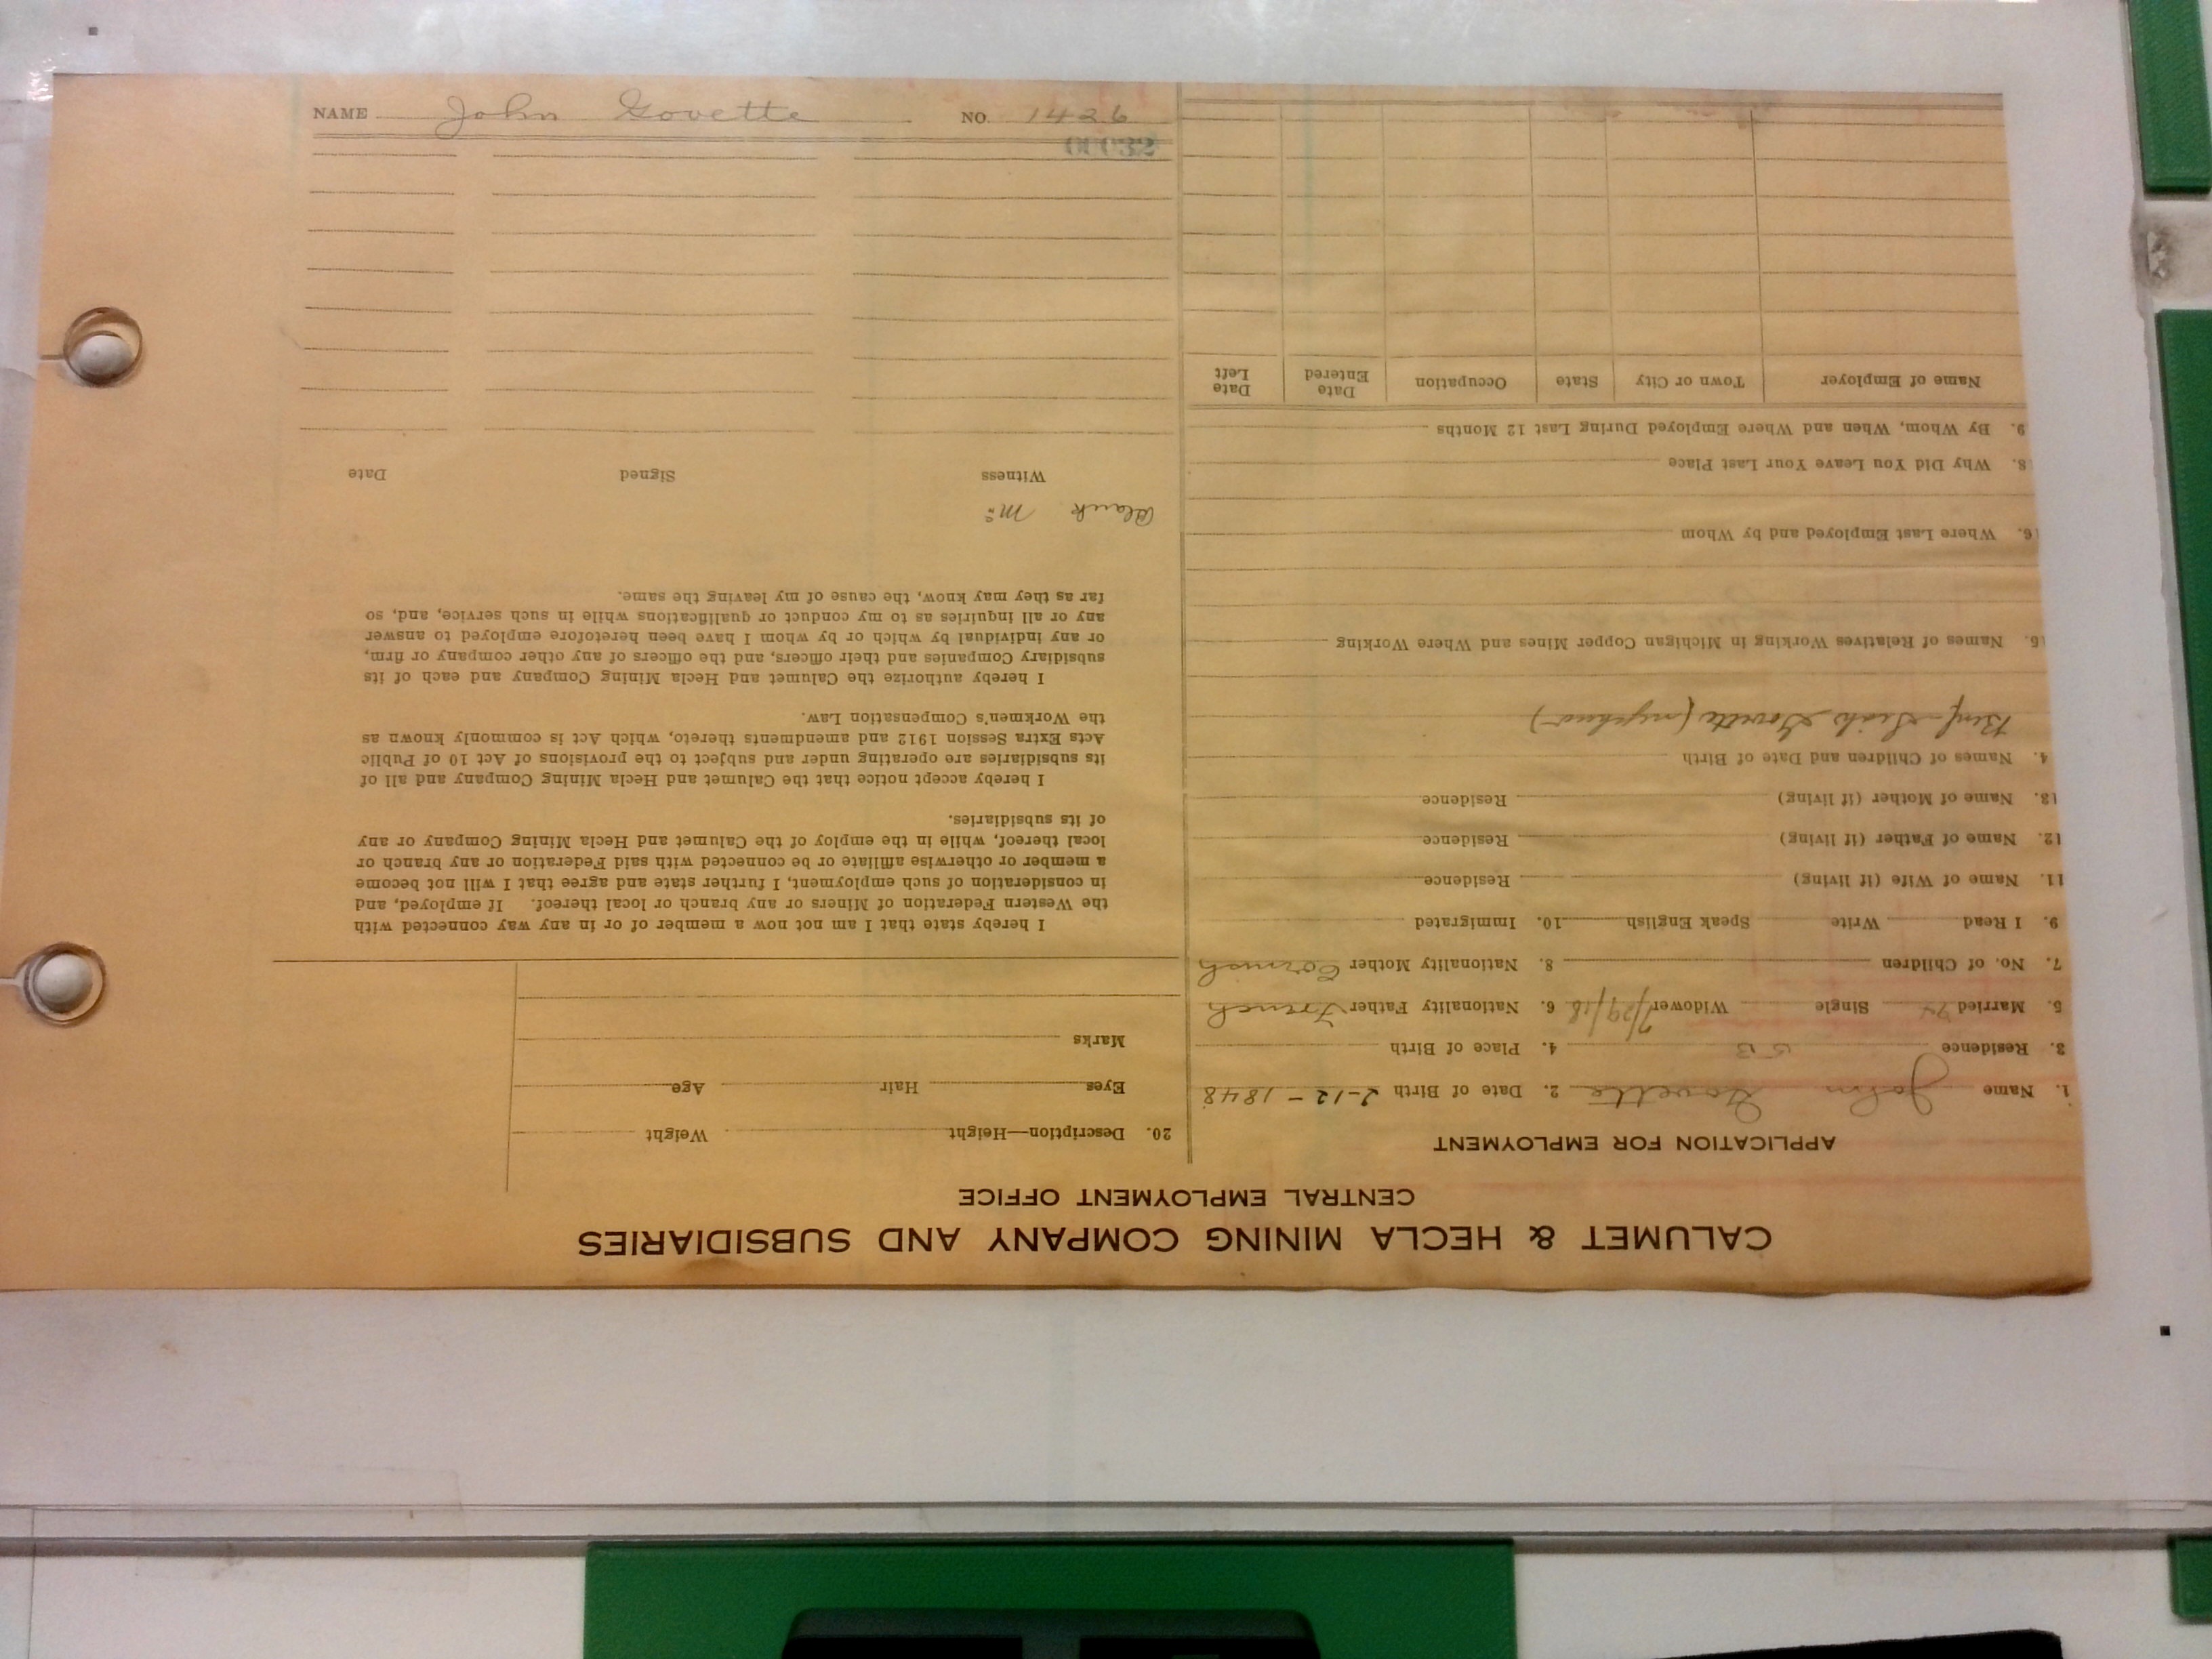 NAME John Govette NO. 1426
00032
CALUMET & HECLA MINING COMPANY AND SUBSIDIARIES
CENTRAL EMPLOYMENT OFFICE
APPLICATION FOR EMPLOYMENT
1. Name John Govette 2. Date of Birth 2-12-1848
3. Residence 4. Place of Birth
5. Married Single Widower 7/29/18 6. Nationality Father French
7. No. of Children 8. Nationality Mother Cornish
9. I Read Write Speak English 10. Immigrated
11. Name of Wife (if living) Residence
12. Name of Father (if living) Residence
13. Name of Mother (if living) Residence
4. Names of Children and Date of Birth
Benf - Govette (nephew)
15. Names of Relatives Working in Michigan Copper Mines and Where Working
16. Where Last Employed and by Whom
8. Why Did You Leave Your Last Place
9. By Whom, When and Where Employed During Last 12 Months
Name of Employer Town or City State Occupation Date Entered Date Left
20. Description—Height Weight
Eyes Hair Age
Marks
I hereby state that I am not now a member of or in any way connected with
the Western Federation of Miners or any branch or local thereof. If employed, and
in consideration of such employment, I further state and agree that I will not become
a member or otherwise affiliate or be connected with said Federation or any branch or
local thereof, while in the employ of the Calumet and Hecla Mining Company or any
of its subsidiaries.
I hereby accept notice that the Calumet and Hecla Mining Company and all of
its subsidiaries are operating under and subject to the provisions of Act 10 of Public
Acts Extra Session 1912 and amendments thereto, which Act is commonly known as
the Workmen's Compensation Law.
I hereby authorize the Calumet and Hecla Mining Company and each of its
subsidiary Companies and their officers, and the officers of any other company or firm,
or any individual by which or by whom I have been heretofore employed to answer
any or all inquiries as to my conduct or qualifications while in such service, and, so
far as they may know, the cause of my leaving the same.
Witness Signed Date